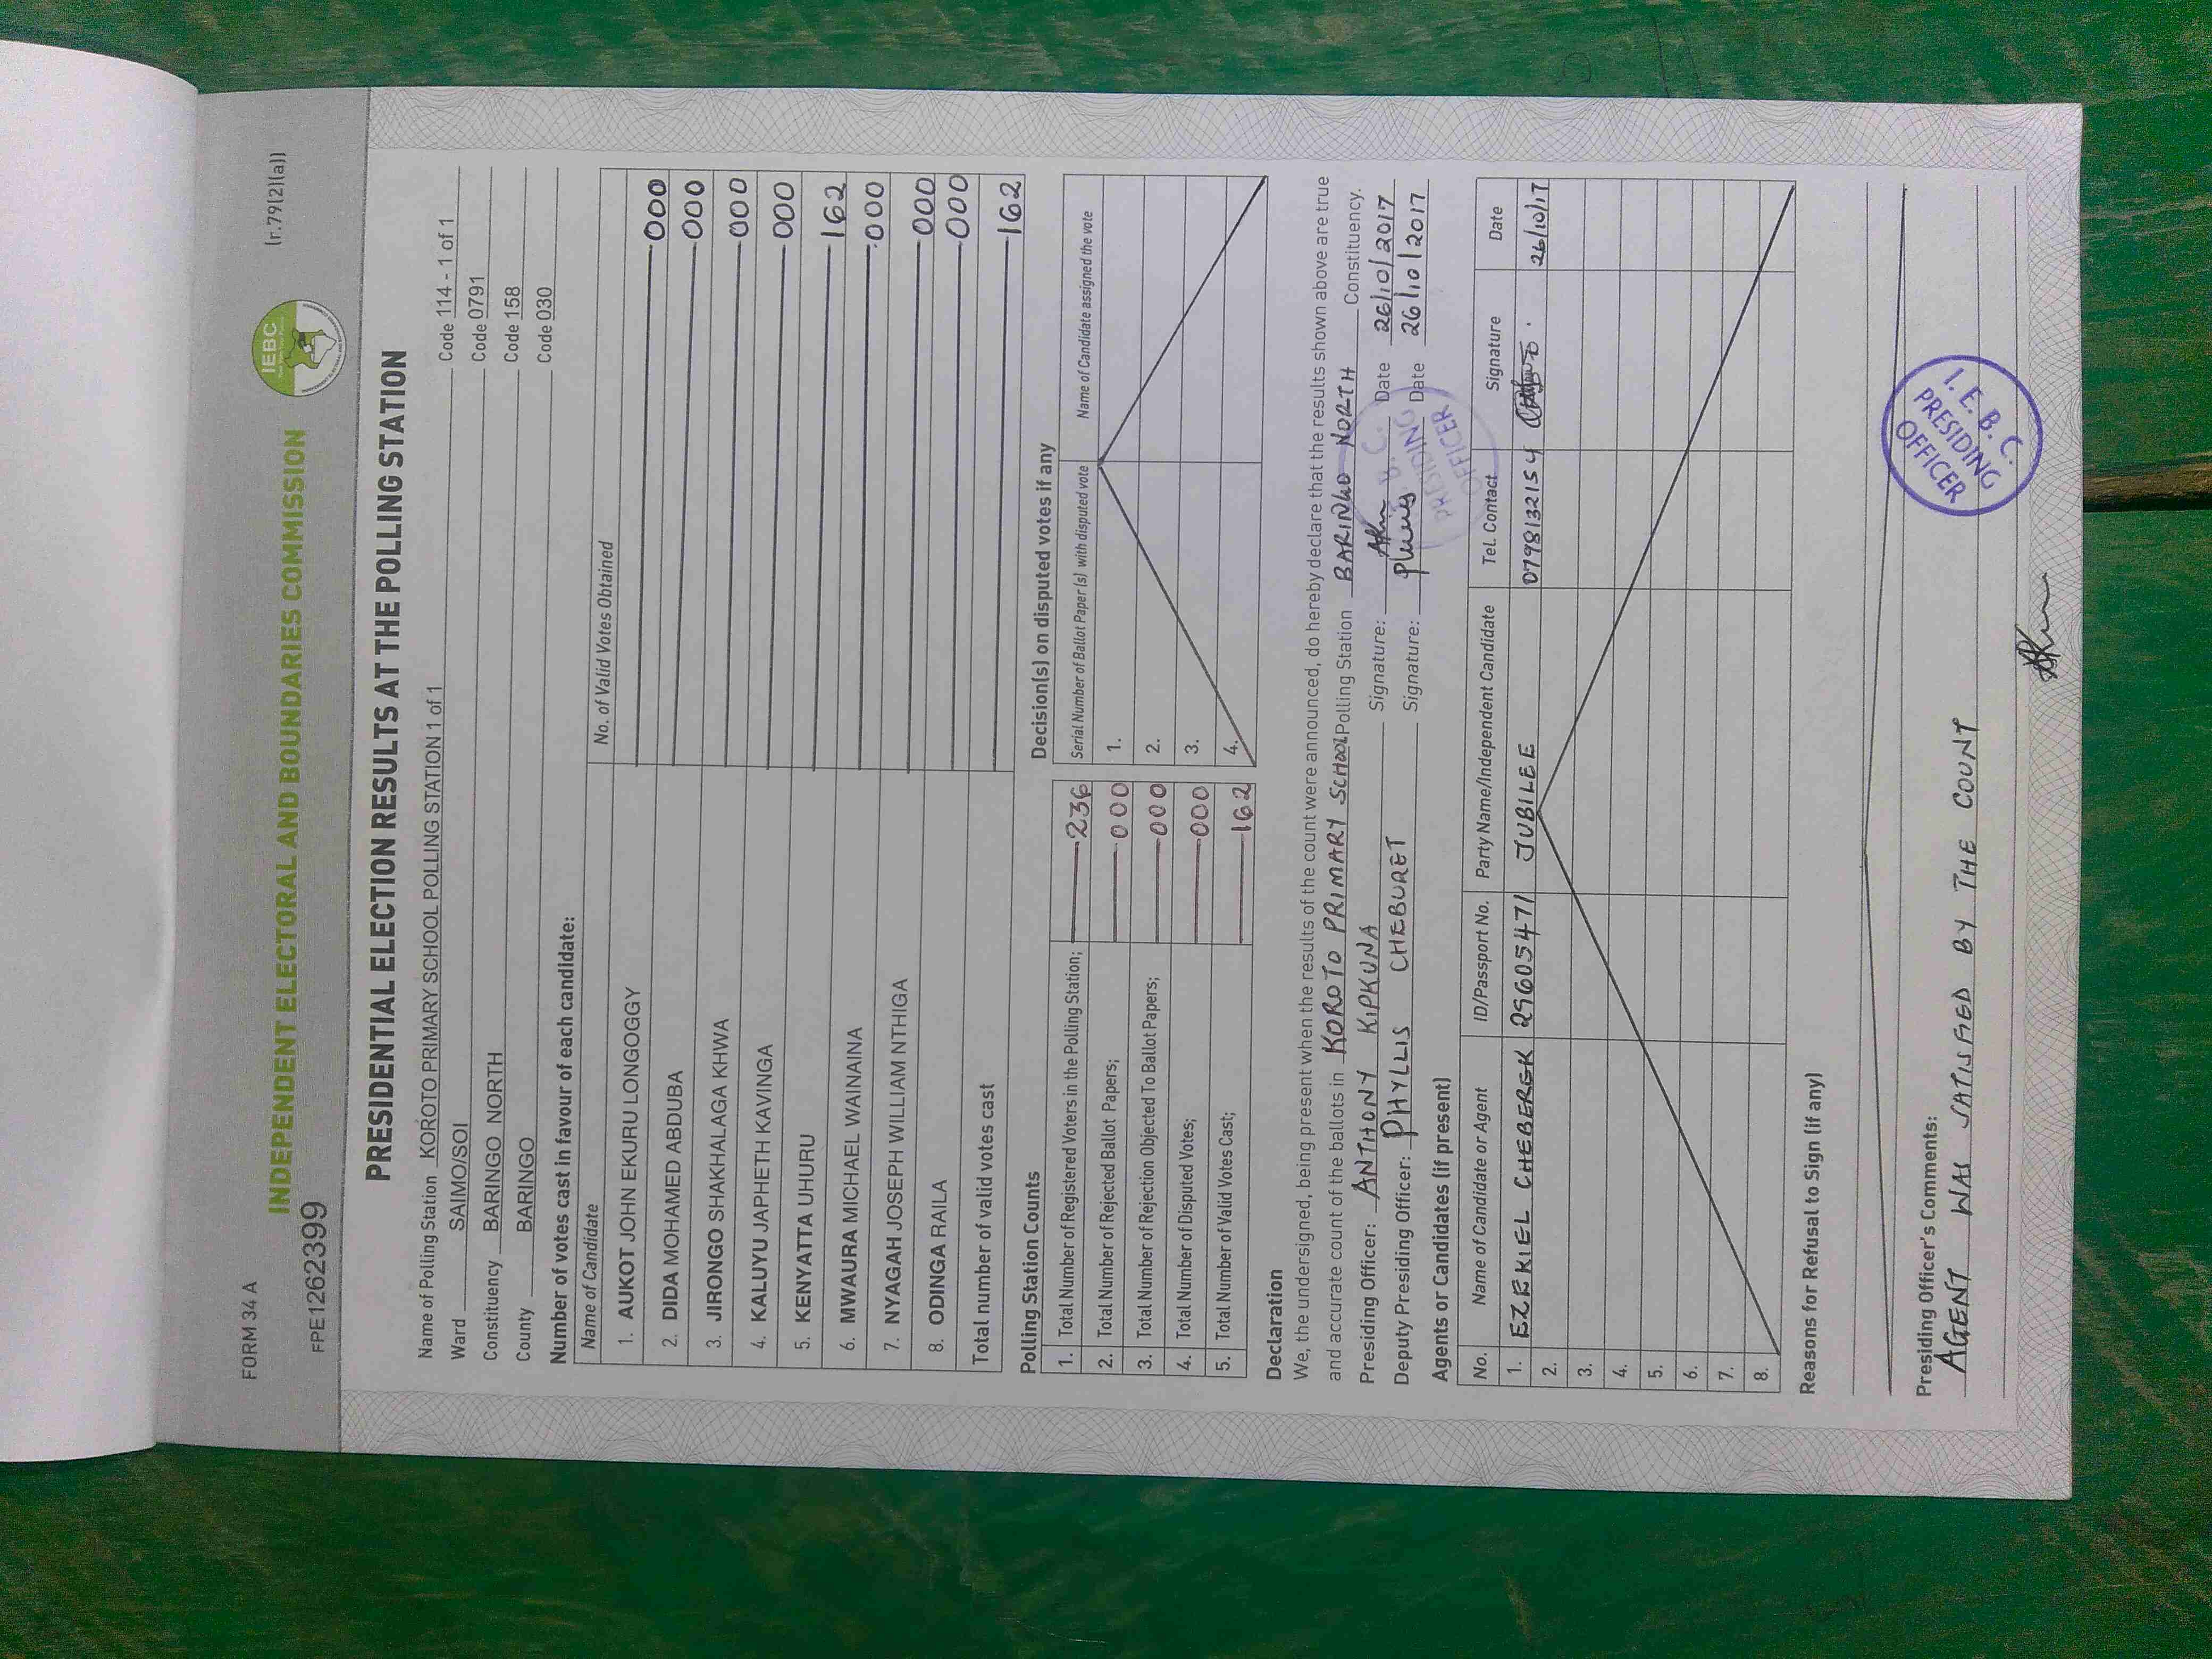 FORM 34 A
[r.79(2)(a)]
INDEPENDENT ELECTORAL AND BOUNDARIES COMMISSION
IEBC
FPE1262399
PRESIDENTIAL ELECTION RESULTS AT THE POLLING STATION
Name of Polling Station KOROTO PRIMARY SCHOOL POLLING STATION 1 of 1 Code 114 - 1 of 1
Ward SAIMO/SOI Code 0791
Constituency BARINGO NORTH Code 158
County BARINGO Code 030
Number of votes cast in favour of each candidate:
Name of Candidate No. of Valid Votes Obtained
1. AUKOT JOHN EKURU LONGOGGY 000
2. DIDA MOHAMED ABDUBA 000
3. JIRONGO SHAKHALAGA KHWA 000
4. KALUYU JAPHETH KAVINGA 000
5. KENYATTA UHURU 162
6. MWAURA MICHAEL WAINAINA 000
7. NYAGAH JOSEPH WILLIAM NTHIGA 000
8. ODINGA RAILA 000
Total number of valid votes cast 162
Polling Station Counts
1. Total Number of Registered Voters in the Polling Station; 236
2. Total Number of Rejected Ballot Papers; 000
3. Total Number of Rejection Objected To Ballot Papers; 000
4. Total Number of Disputed Votes; 000
5. Total Number of Valid Votes Cast; 162
Decision(s) on disputed votes if any
Serial Number of Ballot Paper (s) with disputed vote Name of Candidate assigned the vote
1.
2.
3.
4.
Declaration
We, the undersigned, being present when the results of the count were announced, do hereby declare that the results shown above are true
and accurate count of the ballots in KOROTO PRIMARY SCHOOL Polling Station BARINGO NORTH Constituency.
Presiding Officer: ANTHONY KIPKUNA Signature: Date 26/10/2017
Deputy Presiding Officer: PHYLLIS CHEBURET Signature: Date 26/10/2017
I. E. B. C.
PRESIDING
OFFICER
Agents or Candidates (if present)
No. Name of Candidate or Agent ID/Passport No. Party Name/Independent Candidate Tel. Contact Signature Date
1. EZEKIEL CHEBEREK 29605471 JUBILEE 0798132154 26/10/17
2.
3.
4.
5.
6.
7.
8.
Reasons for Refusal to Sign (if any)
Presiding Officer's Comments:
AGENT WAS SATISFIED BY THE COUNT
I. E. B. C.
PRESIDING
OFFICER